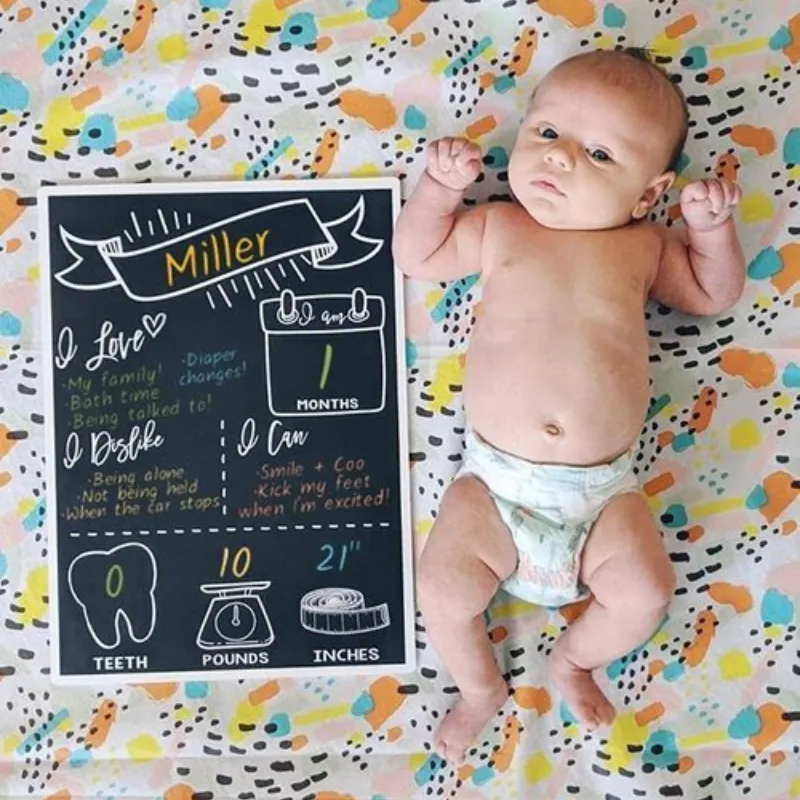 Miller
I Love
·My family!
·Bath time
·Being talked to!
·Diaper
changes!
I am
1
MONTHS
I Dislike
·Being alone
·Not being held
·When the car stops
I Can
·Smile + Coo
·Kick my feet
when I'm excited!
0
TEETH
10
POUNDS
21"
INCHES